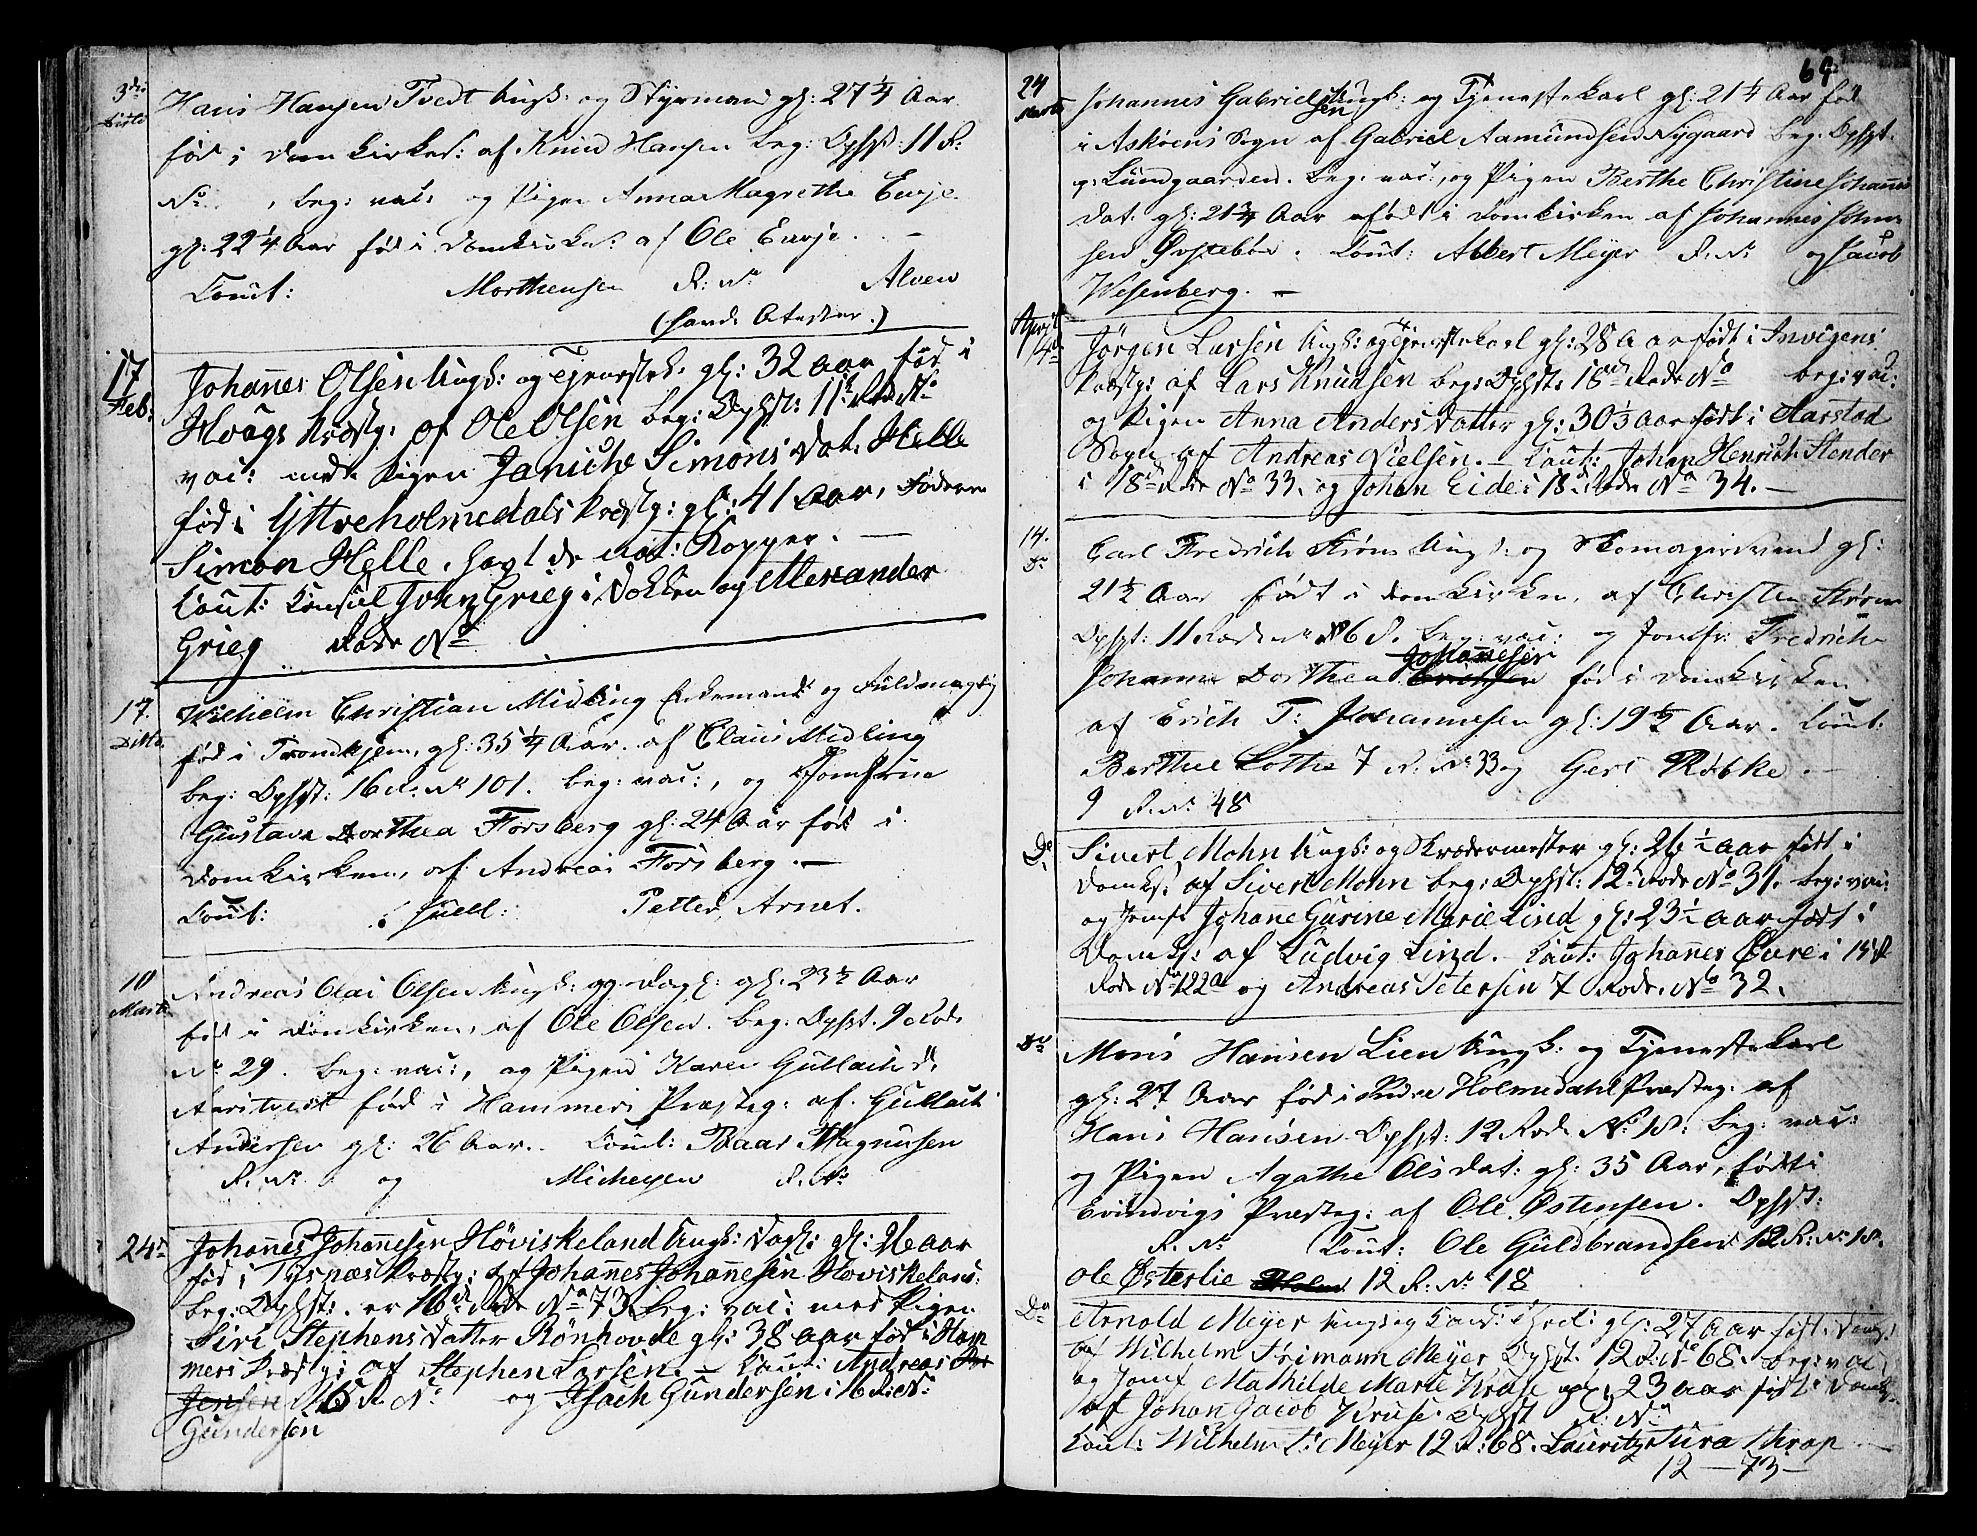 3die
Hans Hansen Tvedt Ungk: og Styrmand gl: 27 1/4 Aar
fød i Domkirkes: af Knud Hansen beg: Ophgst: 11 R:
No , beg: vac: og Pigen Anna Magrethe Evje
gl: 22 1/4 Aar fød i Domkirkes: af Ole Evje. —
Cout: Morthensen R: No Alven
(havde Atester.)
17
Feb.
Johannes Olsen Ungk: og Tjenestek: gl: 32 Aar fød i
Hougs Præstg: af Ole Olsen beg: Ophst: 11te Rode No
vac: med Pigen Janiche Simons Dat. Helle
fød i Yttreholmedals Præstg: gl: 41 Aar, Føderen
Simon Helle. havt de nat: Kopper. —
Cout: Konsul John Grieg i Dokken og Alexander
Grieg Rode No
17.
Ditto
Wilhelm Christian Midling Enkemand og Fuldmægtig
fød i Trondhjem, gl: 35 1/4 Aar. af Claus Midling
beg: Ophst: 16 R: No 101. beg: vac:, og Jomfrue
Gustava Dorthea Forsberg gl: 24 Aar født i
Domkirken, af Andreas Forsberg. —
Cout: Petter Arnet.
10
Marti
Andreas Olai Olsen Ungk: og Dagl: gl: 23 1/2 Aar
fød i Domkirken, af Ole Olsen. beg: Ophst. 9 Rode
No 29. beg: vac:, og Pigen Karen Gullach d:
fød i Hammers Præsteg: af Gullach
Andersen gl: 26 Aar. Cout: Baar Magnusen
R. No og Michelsen R. No
24de
Johannes Johannesen Höviskeland Ungk: Dagl: gl: 26 Aar
fød i Tysnæs Præstg: af Johannes Johannesen Hoviskeland:
beg: Ophst: er 16de Rode No 73 beg: vac: med Pigen
Siri Stephens Datter Rönhovde gl: 38 Aar fød i Ham
mers Præstg: af Stephen Larsen. — Cout: Andreas
Jensen 16 R No og Isach Gundersen i 16 R: No
Gundersen
69
24
Marti
Johannes Gabrielsen Ungk: og Tjenestekarl gl: 21 1/4 Aar fød
i Askøens Sogn af Gabriel Aamundsen Nygaard beg: Ophst.
p: Lungaarden. beg: vac:, og Pigen Berthe Christine Johannes
Dat. gl: 21 3/4 Aar født i Domkirken af Johannes John
sen Øvstebøe. Cout: Albert Meyer R: No og Jacob
Wesenberg. —
April
4de
Jørgen Larsen Ungk: og Tjenestekarl gl: 28 Aar født i Invigens
Præstg: af Lars Knudsen beg: Ophst: 18de Rode No beg: vac:
og Pigen Anna Anders Datter gl: 30 1/2 Aar født i Aarstad
Sogn af Andreas Nielsen. — Cout: Johan Henrich Stender
i 18de Rode No 33. og Johan Eide i 18de Rode No 34. —
14.
do
Carl Fredrich Strøm Ungk: og Skomagersvend gl:
21 1/2 Aar født i Domkirken, af Christen Strøm
Ophst: 11 Rode No 68. beg: vac: og Jomfr: Fredrich
Johanna Dorthea Johannesen fød i Domkirken
af Erich T: Johannesen gl: 19 1/2 Aar. Cout:
Berthel Lothe 7 R. No 33 og Gert Röbke. —
9 R. No 48
Do
Sivert Mohn Ungk: og Skrædermester gl: 26 1/2 Aar født i
Domk: af Sivert Mohn beg: Ophst: 12te Rode No 31. beg: vac:
og Jomfr Johanne Gurine Marie Lind gl: 23 1/2 Aar født i
Domk: af Ludvig Lind. — Cout: Johannes Øvre i 15de
Rode No 122a og Andreas Petersen 7 Rode. No 32.
Do
Mons Hansen Lien Ungk: og Tjenestekarl
gl: 27 Aar fød i Indre Holmedahl Præsteg: af
Hans Hansen Ophst: 12 Rode No 18: beg: vac:
og Pigen Agathe Ols Dat: gl: 35 Aar, født i
Evindvigs Præsteg: af Ole Østensen. Ophst:
R. No Cout: Ole Guldbrandsen 12 R: No 18.
Ole Østerlie 12 R: No 18
Do
Arnold Meyer Ungk og gl: 27 Aar født i Domk:
af Wilhelm Frimann Meyer Ophst. 12 R. No 68. beg: vac
og Jomf Mathilde Marie Kruse gl: 23 Aar født i Domk:
af Johan Jacob Kruse Ophst R: No
Cout: Wilhelm F: Meyer 12 R: 68. Lauritz Krap —
12 — 73 —